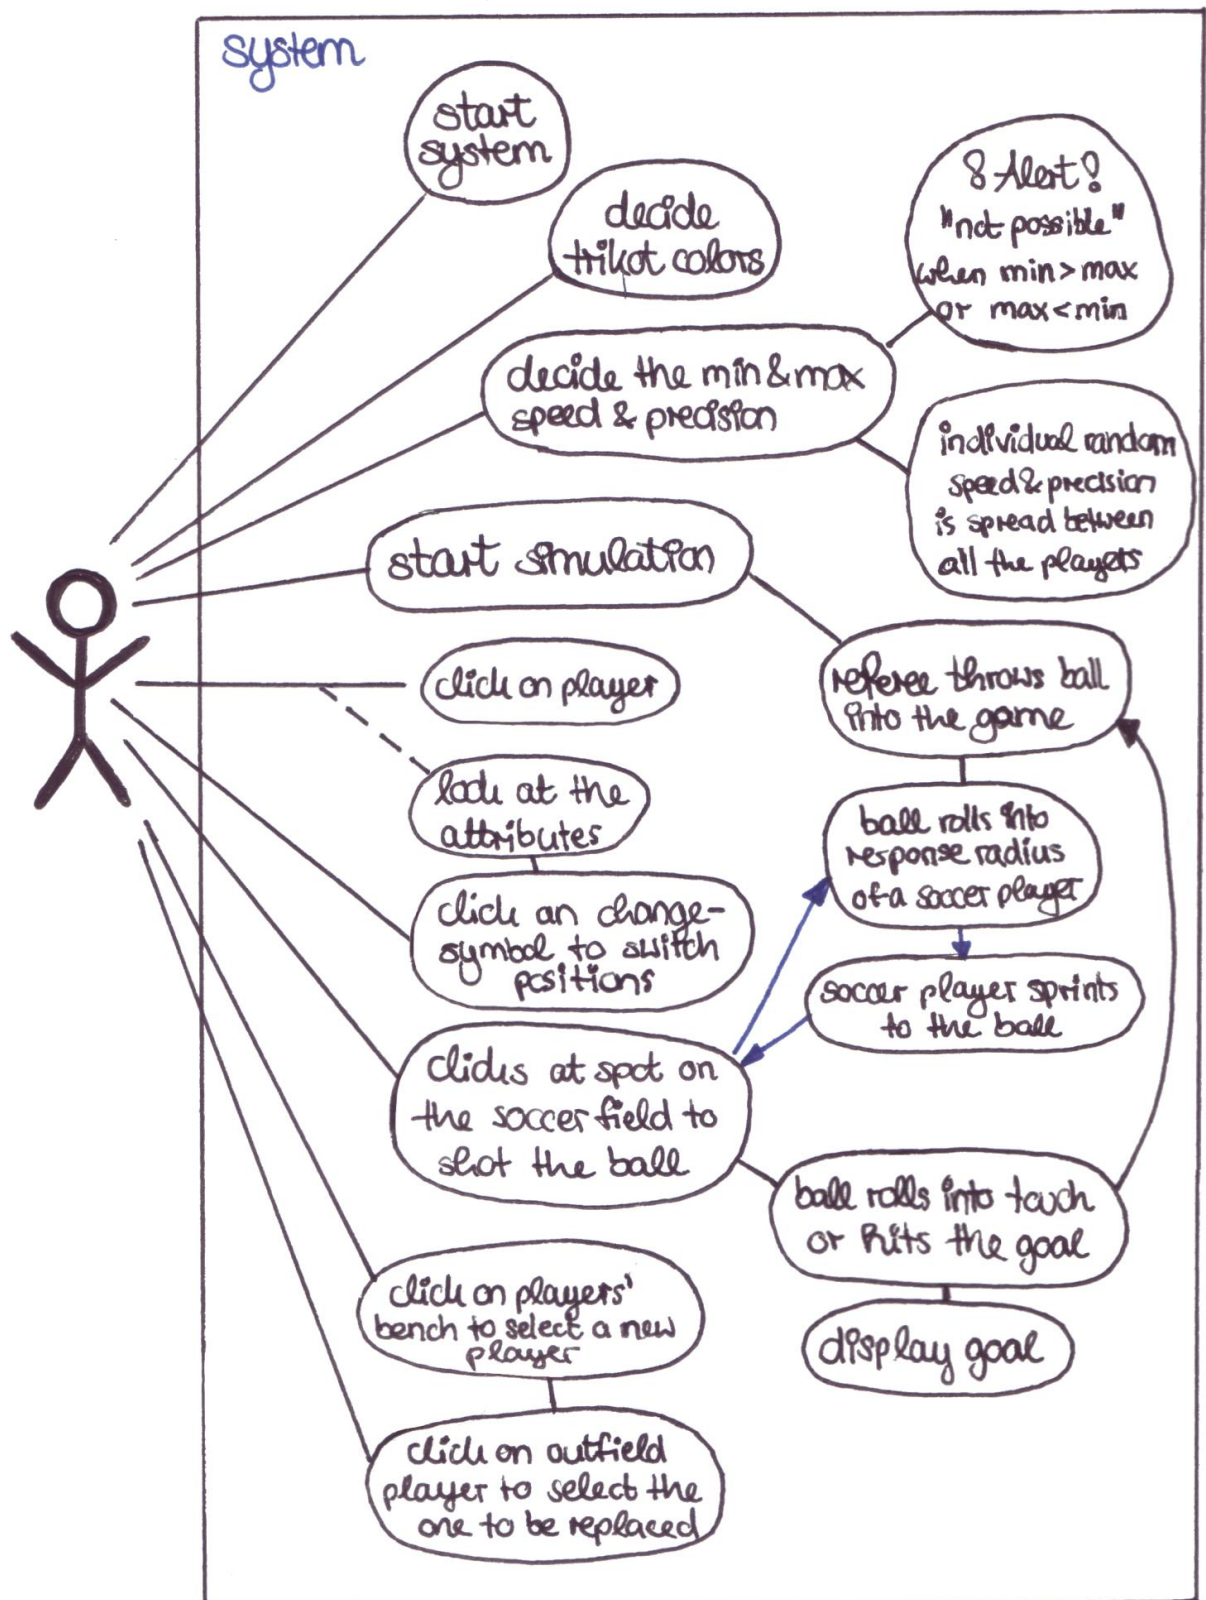 system
start
system
decide
trikot colors
8 Alert!
"not possible"
when min>max
or max<min
decide the min & max
speed & precision
individual random
speed & precision
is spread between
all the players
start simulation
click on player
referee throws ball
into the game
look at the
attributes
ball rolls into
response radius
of a soccer player
click an change-
symbol to switch
positions
soccer player sprints
to the ball
clicks at spot on
the soccer field to
shot the ball
ball rolls into touch
or hits the goal
click on players'
bench to select a new
player
display goal
click on outfield
player to select the
one to be replaced